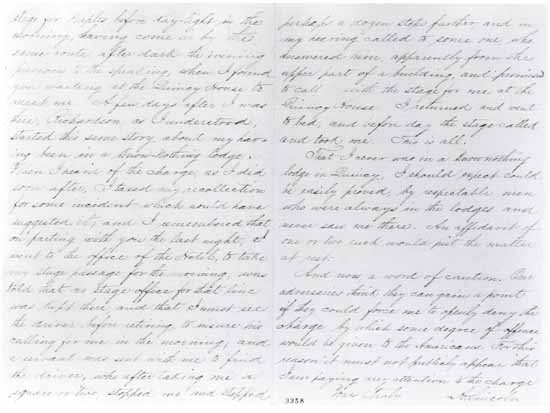 stage for Naples before day-light in the
morning, having come in by the
same route after dark the evening
previous to the speaking, when I found
you waiting at the Quincy House to
meet me. A few days after I was
there, Richardson, as I understood,
started this same story about my hav-
ing been in a Know-Nothing lodge.
When I heard of the charge, as I did
soon after, I taxed my recollection
for some incident which could have
suggested it; and I remembered that
on parting with you the last night, I
went to the office of the Hotel, to take
my stage passage for the morning, was
told that no stage office for that line
was kept there, and that I must see
the driver, before retiring, to insure his
calling for me in the morning; and
a servant was sent with me to find
the driver, who after taking me a
square or two, stopped me, and stepped
perhaps a dozen steps farther, and in
my hearing called to some one, who
answered him, apparently from the
upper part of a building, and promised
to call with the stage for me at the
Quincy House. I returned and went
to bed, and before day the stage called
and took me. This is all.
That I never was in a Know-nothing
lodge in Quincy, I should expect could
be easily proved, by respectable men
who were always in the lodges and
never saw me there. An affidavit of
one or two such would put the matter
at rest.
And now, a word of caution. Our
adversaries think they can gain a point
if they could force me to openly deny the
charge, by which some degree of offence
would be given to the Americans. For this
reason it must not publicly appear that
I am paying any attention to the charge.
Yours Truly
A. Lincoln
3358